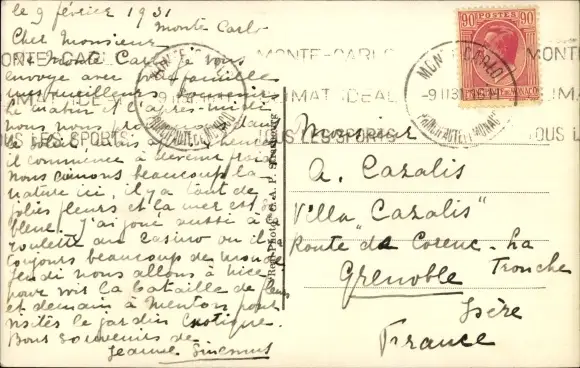 le 9 février 1931
Monte Carlo
Cher Monsieur
De Monte Carlo je vous
envoye avec votre famille
mes meilleurs souvenirs
Le matin et l'après-midi
nous nous
il commence à devenir froid
nous aimons beaucoup la
nature ici, il y a tant de
jolies fleurs et la mer est si
bleue. J'ai joué aussi à
roulette au Casino ou il a
toujours beaucoup de monde
jeudi nous allons à Nice
pour voir la bataille de fleurs
et demain à Menton pour
visiter le jardin Exotique.
Bons souvenirs de
Jeanne
MONTE-CARLO
CLIMAT IDEAL
TOUS LES SPORTS
MONTE-CARLO
9 II 31
PRINCIPAUTE DE MONACO
90 POSTES 90
MONACO
Real-Photo C. A. P. Strasbourg
Monsieur
A. Cazalis
Villa Cazalis"
Route "de Corenc-La
Tronche
Grenoble
Isère
France